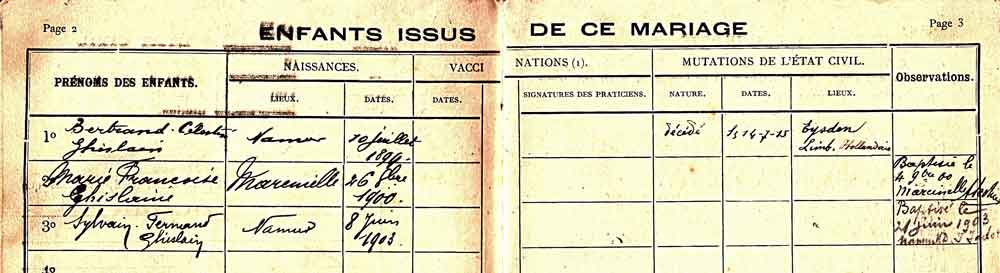 Page 2
Page 3
ENFANTS ISSUS DE CE MARIAGE
PRÉNOMS DES ENFANTS.
NAISSANCES.
VACCINATIONS (1).
MUTATIONS DE L'ÉTAT CIVIL.
Observations.
LIEUX.
DATES.
DATES.
SIGNATURES DES PRATICIENS.
NATURE.
DATES.
LIEUX.
1º Bertrand Célestin
Ghislain
Namur
10 juillet
décédé
14-7-25
Eysden
Limb. Hollandais
Marie Françoise
Ghislaine
Marcinelle
26 8bre
1900.
Baptisée le
4 9bre 00
Marcinelle
3º Sylvain Fernand
Ghislain
Namur
8 Juin
1903.
Baptisé le
21 juin 1903